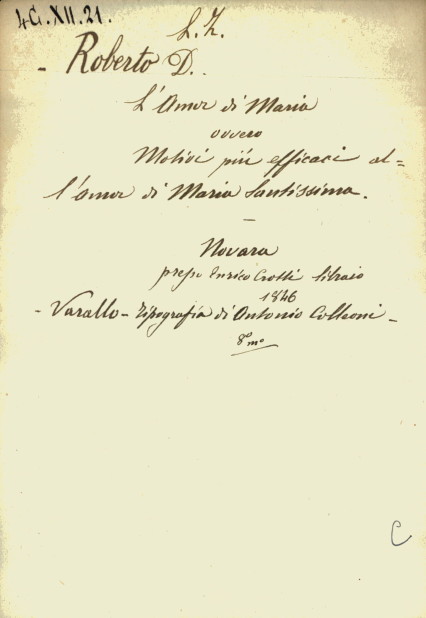 4G.XII.21.
L.Z.
- Roberto D..
L'Amor di Maria
ovvero
Motivi più efficaci al=
l'amor di Maria Santissima.
—
Novara
presso Enrico Crotti libraio
1846
- Varallo - Tipografia di Antonio Colleoni -
8º mo
C